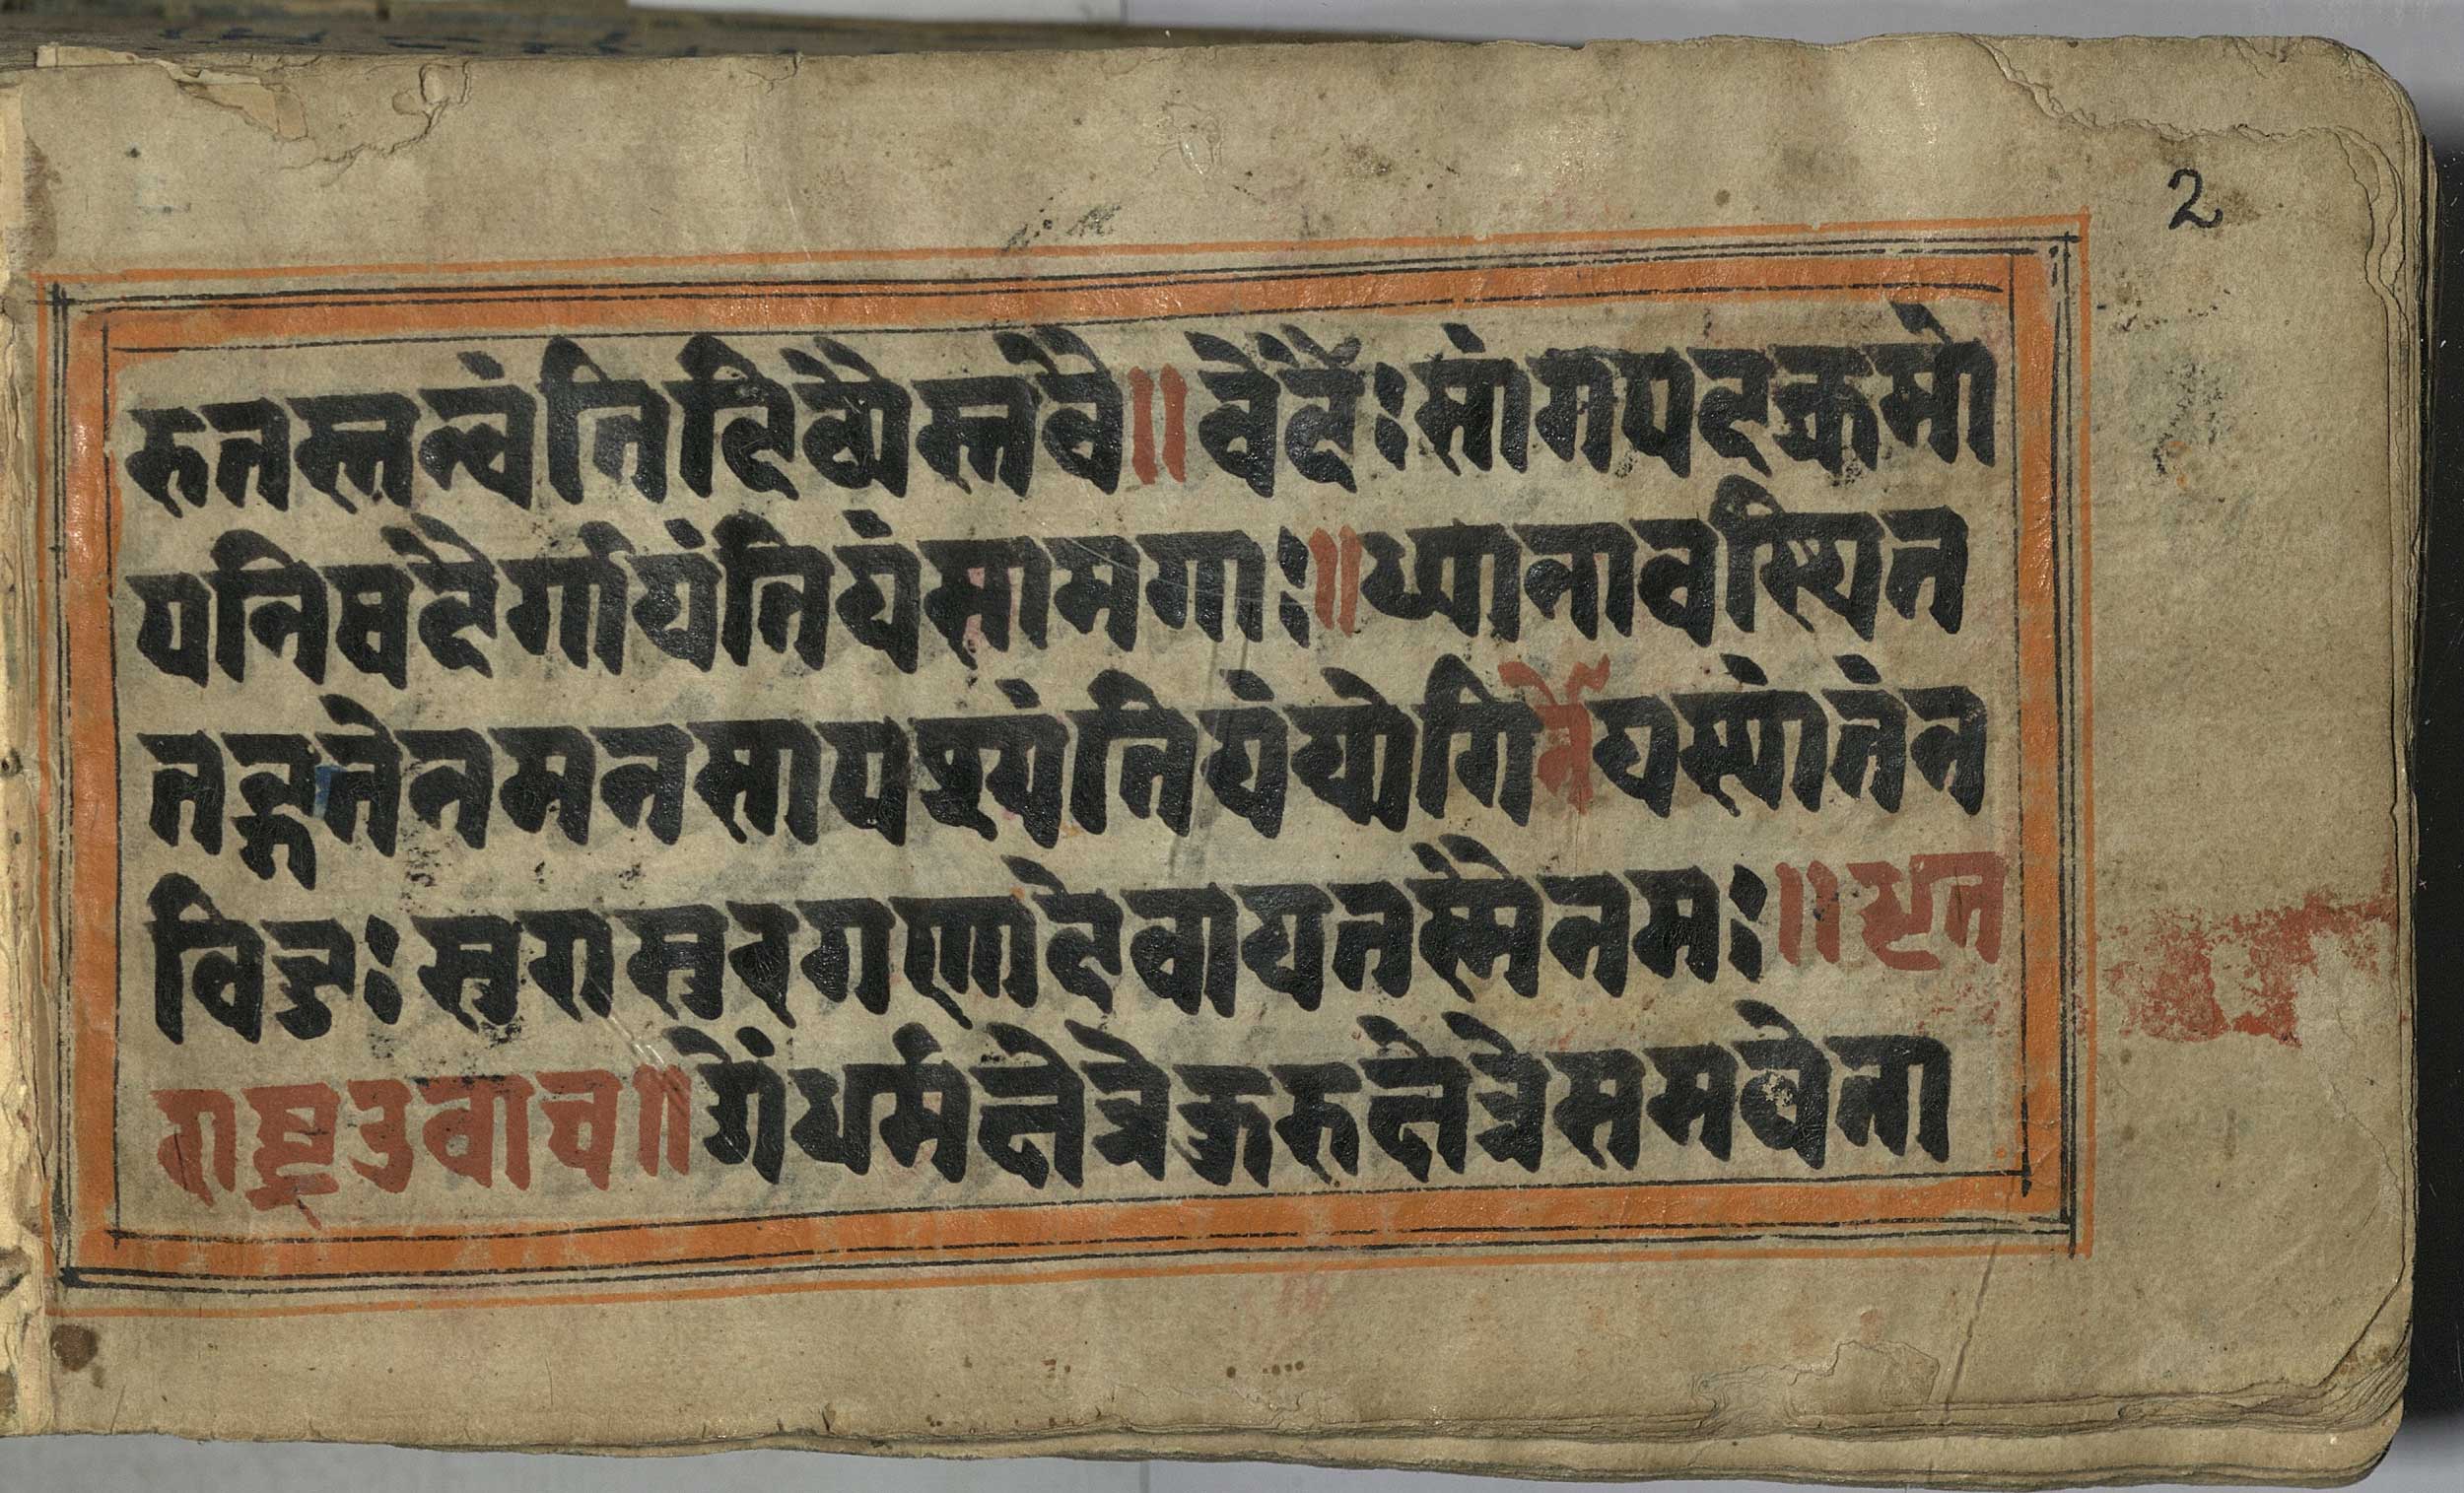 2
रुतस्तन्वंतिदिव्यैस्तवै॥वेदैः सांगपदक्रमो
पनिषदैर्गायंतियंसामगाः॥ध्यानावस्थित
तद्गतेनमनसापश्यंतियंयोगिनोयस्यांतंन
विदुःसुरासुरगणादेवायतस्मैनमः॥धृत
राष्ट्रउवाच॥ॐधर्मक्षेत्रेकुरुक्षेत्रेसमवेता